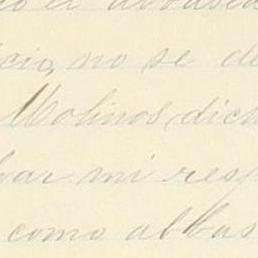 icio, no se de
Molinos, dich
var mi resp
como al bas